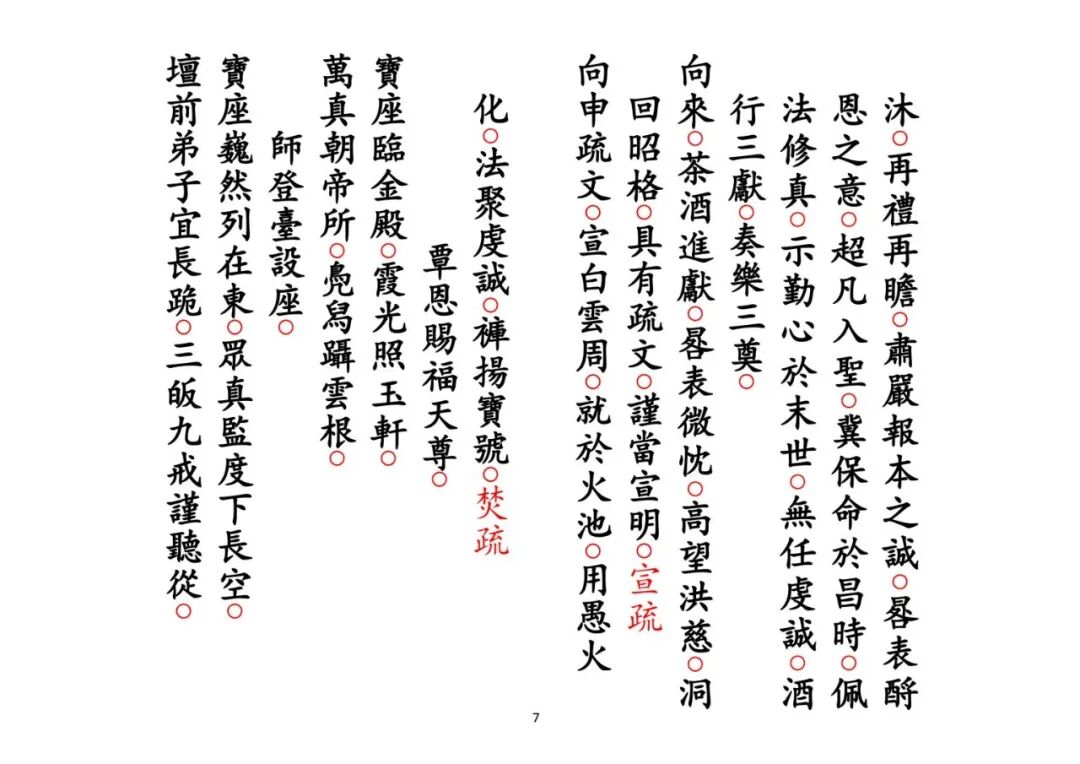 沐○再禮再瞻○肅嚴報本之誠○晷表酧
恩之意○超凡入聖○冀保命於昌時○佩
法修真○示勤心於末世○無任虔誠○酒
行三獻○奏樂三奠○
向來○茶酒進獻○晷表微忱○高望洪慈○洞
回昭格○具有疏文○謹當宣明○宣疏
向申疏文○宣白雲周○就於火池○用愚火
化○法聚虔誠○褲揚寶號○焚疏
覃恩賜福天尊○
寶座臨金殿○霞光照玉軒○
萬真朝帝所○鳧舄躡雲根○
師登臺設座○
寶座巍然列在東○眾真監度下長空○
壇前弟子宜長跪○三皈九戒謹聽從○
7